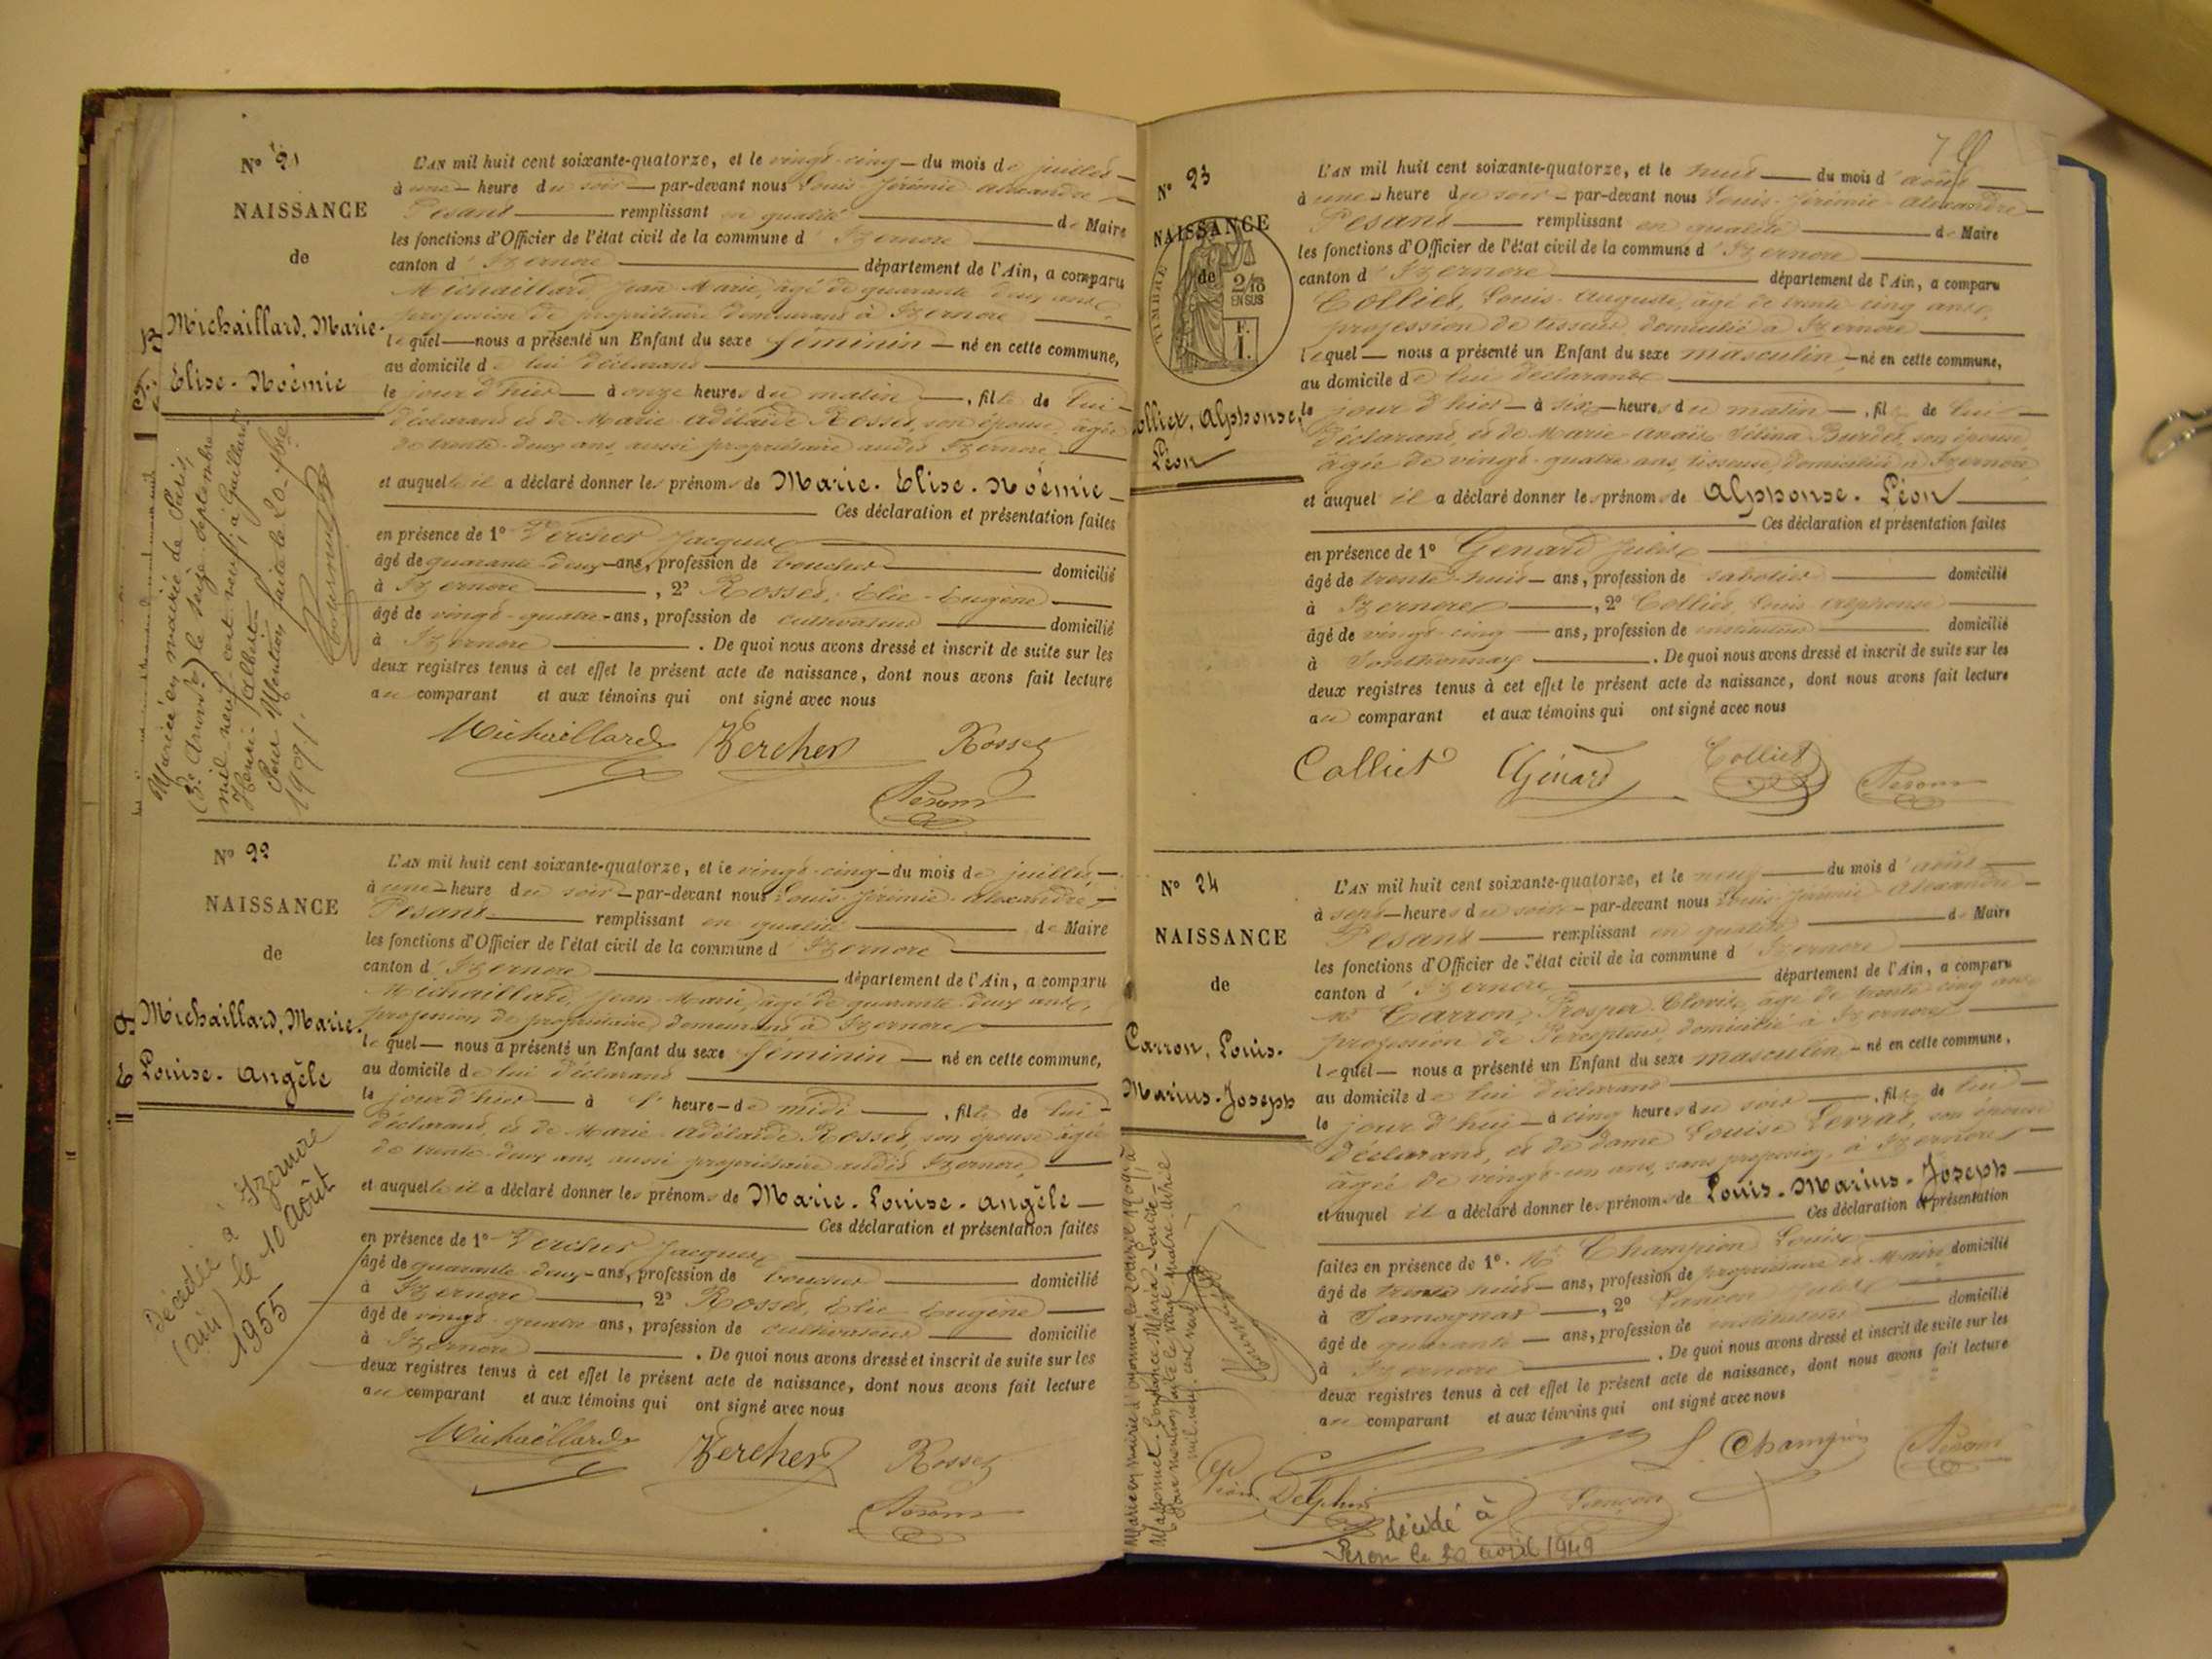 N° 21
NAISSANCE
de
Michaillard, Marie-
Elise-Noémie
Mariée en mairie de Paris,
le seize septembre
mil neuf cent neuf, à Gaillard
Henri-Albert
Pour Mention faite le 20-7bre
1909.
L'AN mil huit cent soixante-quatorze, et le vingt-cinq du mois de juillet
à une heure du soir par-devant nous Louis-Jérémie-Alexandre
Pesant remplissant en qualité de Maire
les fonctions d'Officier de l'état civil de la commune d'Izernore
canton d'Izernore département de l'Ain, a comparu
Michaillard, Jean-Marie, âgé de quarante-deux ans,
profession de propriétaire demeurant à Izernore
lequel nous a présenté un Enfant du sexe féminin né en cette commune,
au domicile de lui déclarant
le jour d'hier à onze heures du matin, fille de lui
déclarant et de Marie-Adélaïde Rosset, son épouse, âgée
de trente-deux ans, aussi propriétaire audit Izernore,
et auquelle il a déclaré donner les prénoms de Marie-Elise-Noémie
Ces déclaration et présentation faites
en présence de 1° Vercher Jacques
âgé de quarante-deux ans, profession de boucher domicilié
à Izernore, 2° Rosset, Elie-Eugène
âgé de vingt-quatre ans, profession de cultivateur domicilié
à Izernore. De quoi nous avons dressé et inscrit de suite sur les
deux registres tenus à cet effet le présent acte de naissance, dont nous avons fait lecture
au comparant et aux témoins qui ont signé avec nous
Michaillard Vercher Rosset
Pesant
N° 22
NAISSANCE
de
Michaillard, Marie-
Louise-Angèle
Décédée à Izernore
(Ain) le 10 août
1955
L'AN mil huit cent soixante-quatorze, et le vingt-cinq du mois de juillet,
à une heure du soir par-devant nous Louis-Jérémie-Alexandre
Pesant remplissant en qualité de Maire
les fonctions d'Officier de l'état civil de la commune d'Izernore
canton d'Izernore département de l'Ain, a comparu
Michaillard, Jean-Marie, âgé de quarante-deux ans,
profession de propriétaire demeurant à Izernore
lequel nous a présenté un Enfant du sexe féminin né en cette commune,
au domicile de lui déclarant
le jour d'hier à l'heure de midi, fille de lui
déclarant, et de Marie-Adélaïde Rosset, son épouse âgée
de trente-deux ans, aussi propriétaire audit Izernore,
et auquelle il a déclaré donner les prénoms de Marie-Louise-Angèle
Ces déclaration et présentation faites
en présence de 1° Vercher Jacques
âgé de quarante-deux ans, profession de boucher domicilié
à Izernore, 2° Rosset, Elie-Eugène
âgé de vingt-quatre ans, profession de cultivateur domicilié
à Izernore. De quoi nous avons dressé et inscrit de suite sur les
deux registres tenus à cet effet le présent acte de naissance, dont nous avons fait lecture
au comparant et aux témoins qui ont signé avec nous
Michaillard Vercher Rosset
Pesant
N° 23
NAISSANCE
de
TIMBRE
2/10
EN SUS
F.
1.
Colliet, Alphonse,
Léon
L'AN mil huit cent soixante-quatorze, et le huit du mois d'août
à une heure du soir par-devant nous Louis-Jérémie-Alexandre
Pesant remplissant en qualité de Maire
les fonctions d'Officier de l'état civil de la commune d'Izernore
canton d'Izernore département de l'Ain, a comparu
Colliet, Louis-Auguste, âgé de trente-cinq ans,
profession de tisseur, domicilié à Izernore
lequel nous a présenté un Enfant du sexe masculin, né en cette commune,
au domicile de lui déclarant
le jour d'hier à six heures du matin, fils de lui
déclarant, et de Marie-Anaïs-Célina Burdet, son épouse,
âgée de vingt-quatre ans, tisseuse, domiciliée à Izernore,
et auquel il a déclaré donner les prénoms de Alphonse-Léon
Ces déclaration et présentation faites
en présence de 1° Génard Jules
âgé de trente-huit ans, profession de sabotier domicilié
à Izernore, 2° Colliet, Louis Alphonse
âgé de vingt-cinq ans, profession de instituteur domicilié
à Sonthonnax. De quoi nous avons dressé et inscrit de suite sur les
deux registres tenus à cet effet le présent acte de naissance, dont nous avons fait lecture
au comparant et aux témoins qui ont signé avec nous
Colliet Génard Colliet Pesant
N° 24
NAISSANCE
de
Carron, Louis-
Marius-Joseph
L'AN mil huit cent soixante-quatorze, et le neuf du mois d'août
à sept heures du soir par-devant nous Louis-Jérémie-Alexandre
Pesant remplissant en qualité de Maire
les fonctions d'Officier de l'état civil de la commune d'Izernore
canton d'Izernore département de l'Ain, a comparu
Mr Carron, Prosper-Clovis, âgé de trente-cinq ans
profession de Percepteur, domicilié à Izernore
lequel nous a présenté un Enfant du sexe masculin né en cette commune,
au domicile de lui déclarant
le jour d'hui à cinq heures du soir, fils de lui
déclarant, et de dame Louise Levrat, son épouse
âgée de vingt-un ans, sans profession, à Izernore
et auquel il a déclaré donner les prénoms de Louis-Marius-Joseph
Ces déclaration et présentation
faites en présence de 1° Mr Champion Louis
âgé de trente-huit ans, profession de propriétaire et Maire domicilié
à Samognat, 2° Lançon Jules
âgé de quarante ans, profession de instituteur domicilié
à Izernore. De quoi nous avons dressé et inscrit de suite sur les
deux registres tenus à cet effet le présent acte de naissance, dont nous avons fait lecture
au comparant et aux témoins qui ont signé avec nous
L. Champion Pesant
Delphin Lançon
décédé à
Peron le 20 avril 1949